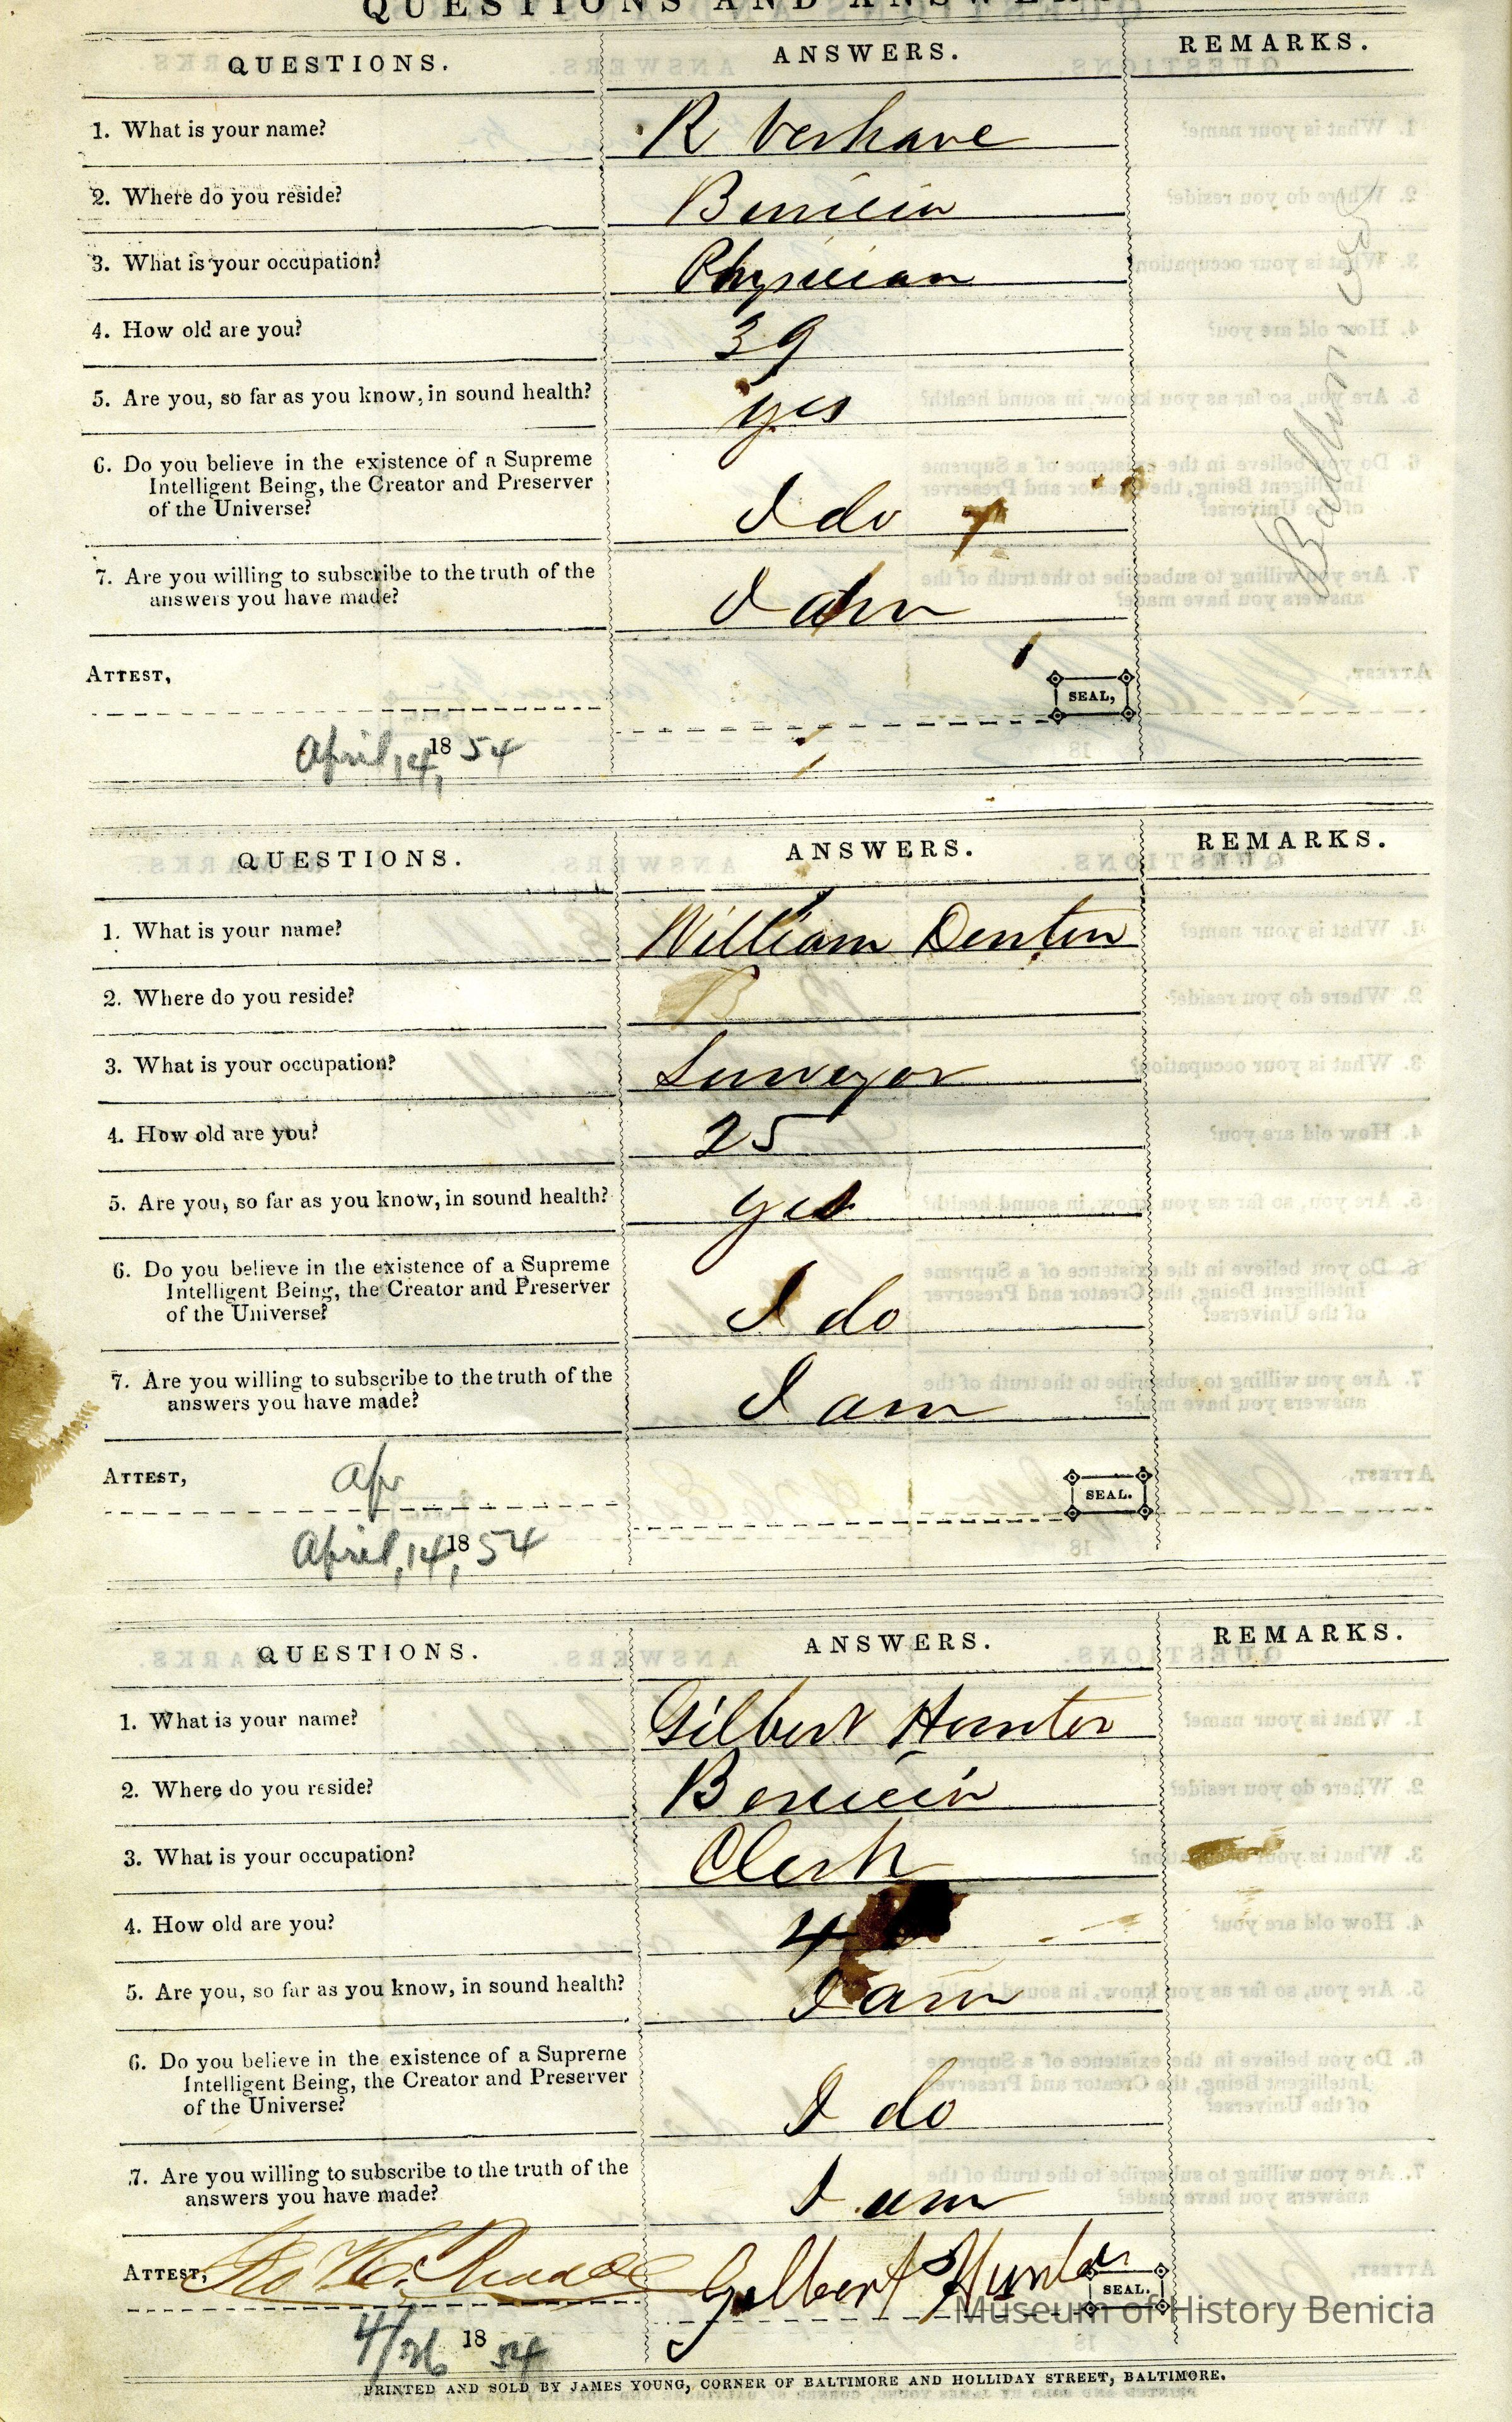 QUESTIONS AND ANSWERS
QUESTIONS. ANSWERS. REMARKS.
1. What is your name? R Verhave
2. Where do you reside? Benicia
3. What is your occupation? Physician
4. How old are you? 39
5. Are you, so far as you know, in sound health? yes
6. Do you believe in the existence of a Supreme
Intelligent Being, the Creator and Preserver
of the Universe? I do
7. Are you willing to subscribe to the truth of the
answers you have made? I am
ATTEST,
SEAL,
April, 14, 1854
QUESTIONS. ANSWERS. REMARKS.
1. What is your name? William Denton
2. Where do you reside? B
3. What is your occupation? Surveyor
4. How old are you? 25
5. Are you, so far as you know, in sound health? yes
6. Do you believe in the existence of a Supreme
Intelligent Being, the Creator and Preserver
of the Universe? I do
7. Are you willing to subscribe to the truth of the
answers you have made? I am
ATTEST, Apr
SEAL.
April, 14, 1854
QUESTIONS. ANSWERS. REMARKS.
1. What is your name? Gilbert Hunter
2. Where do you reside? Benicia
3. What is your occupation? Clerk
4. How old are you? 4
5. Are you, so far as you know, in sound health? I am
6. Do you believe in the existence of a Supreme
Intelligent Being, the Creator and Preserver
of the Universe? I do
7. Are you willing to subscribe to the truth of the
answers you have made? I am
ATTEST, Gilbert Hunter
SEAL.
Museum of History Benicia
4/26 1854
PRINTED AND SOLD BY JAMES YOUNG, CORNER OF BALTIMORE AND HOLLIDAY STREET, BALTIMORE.